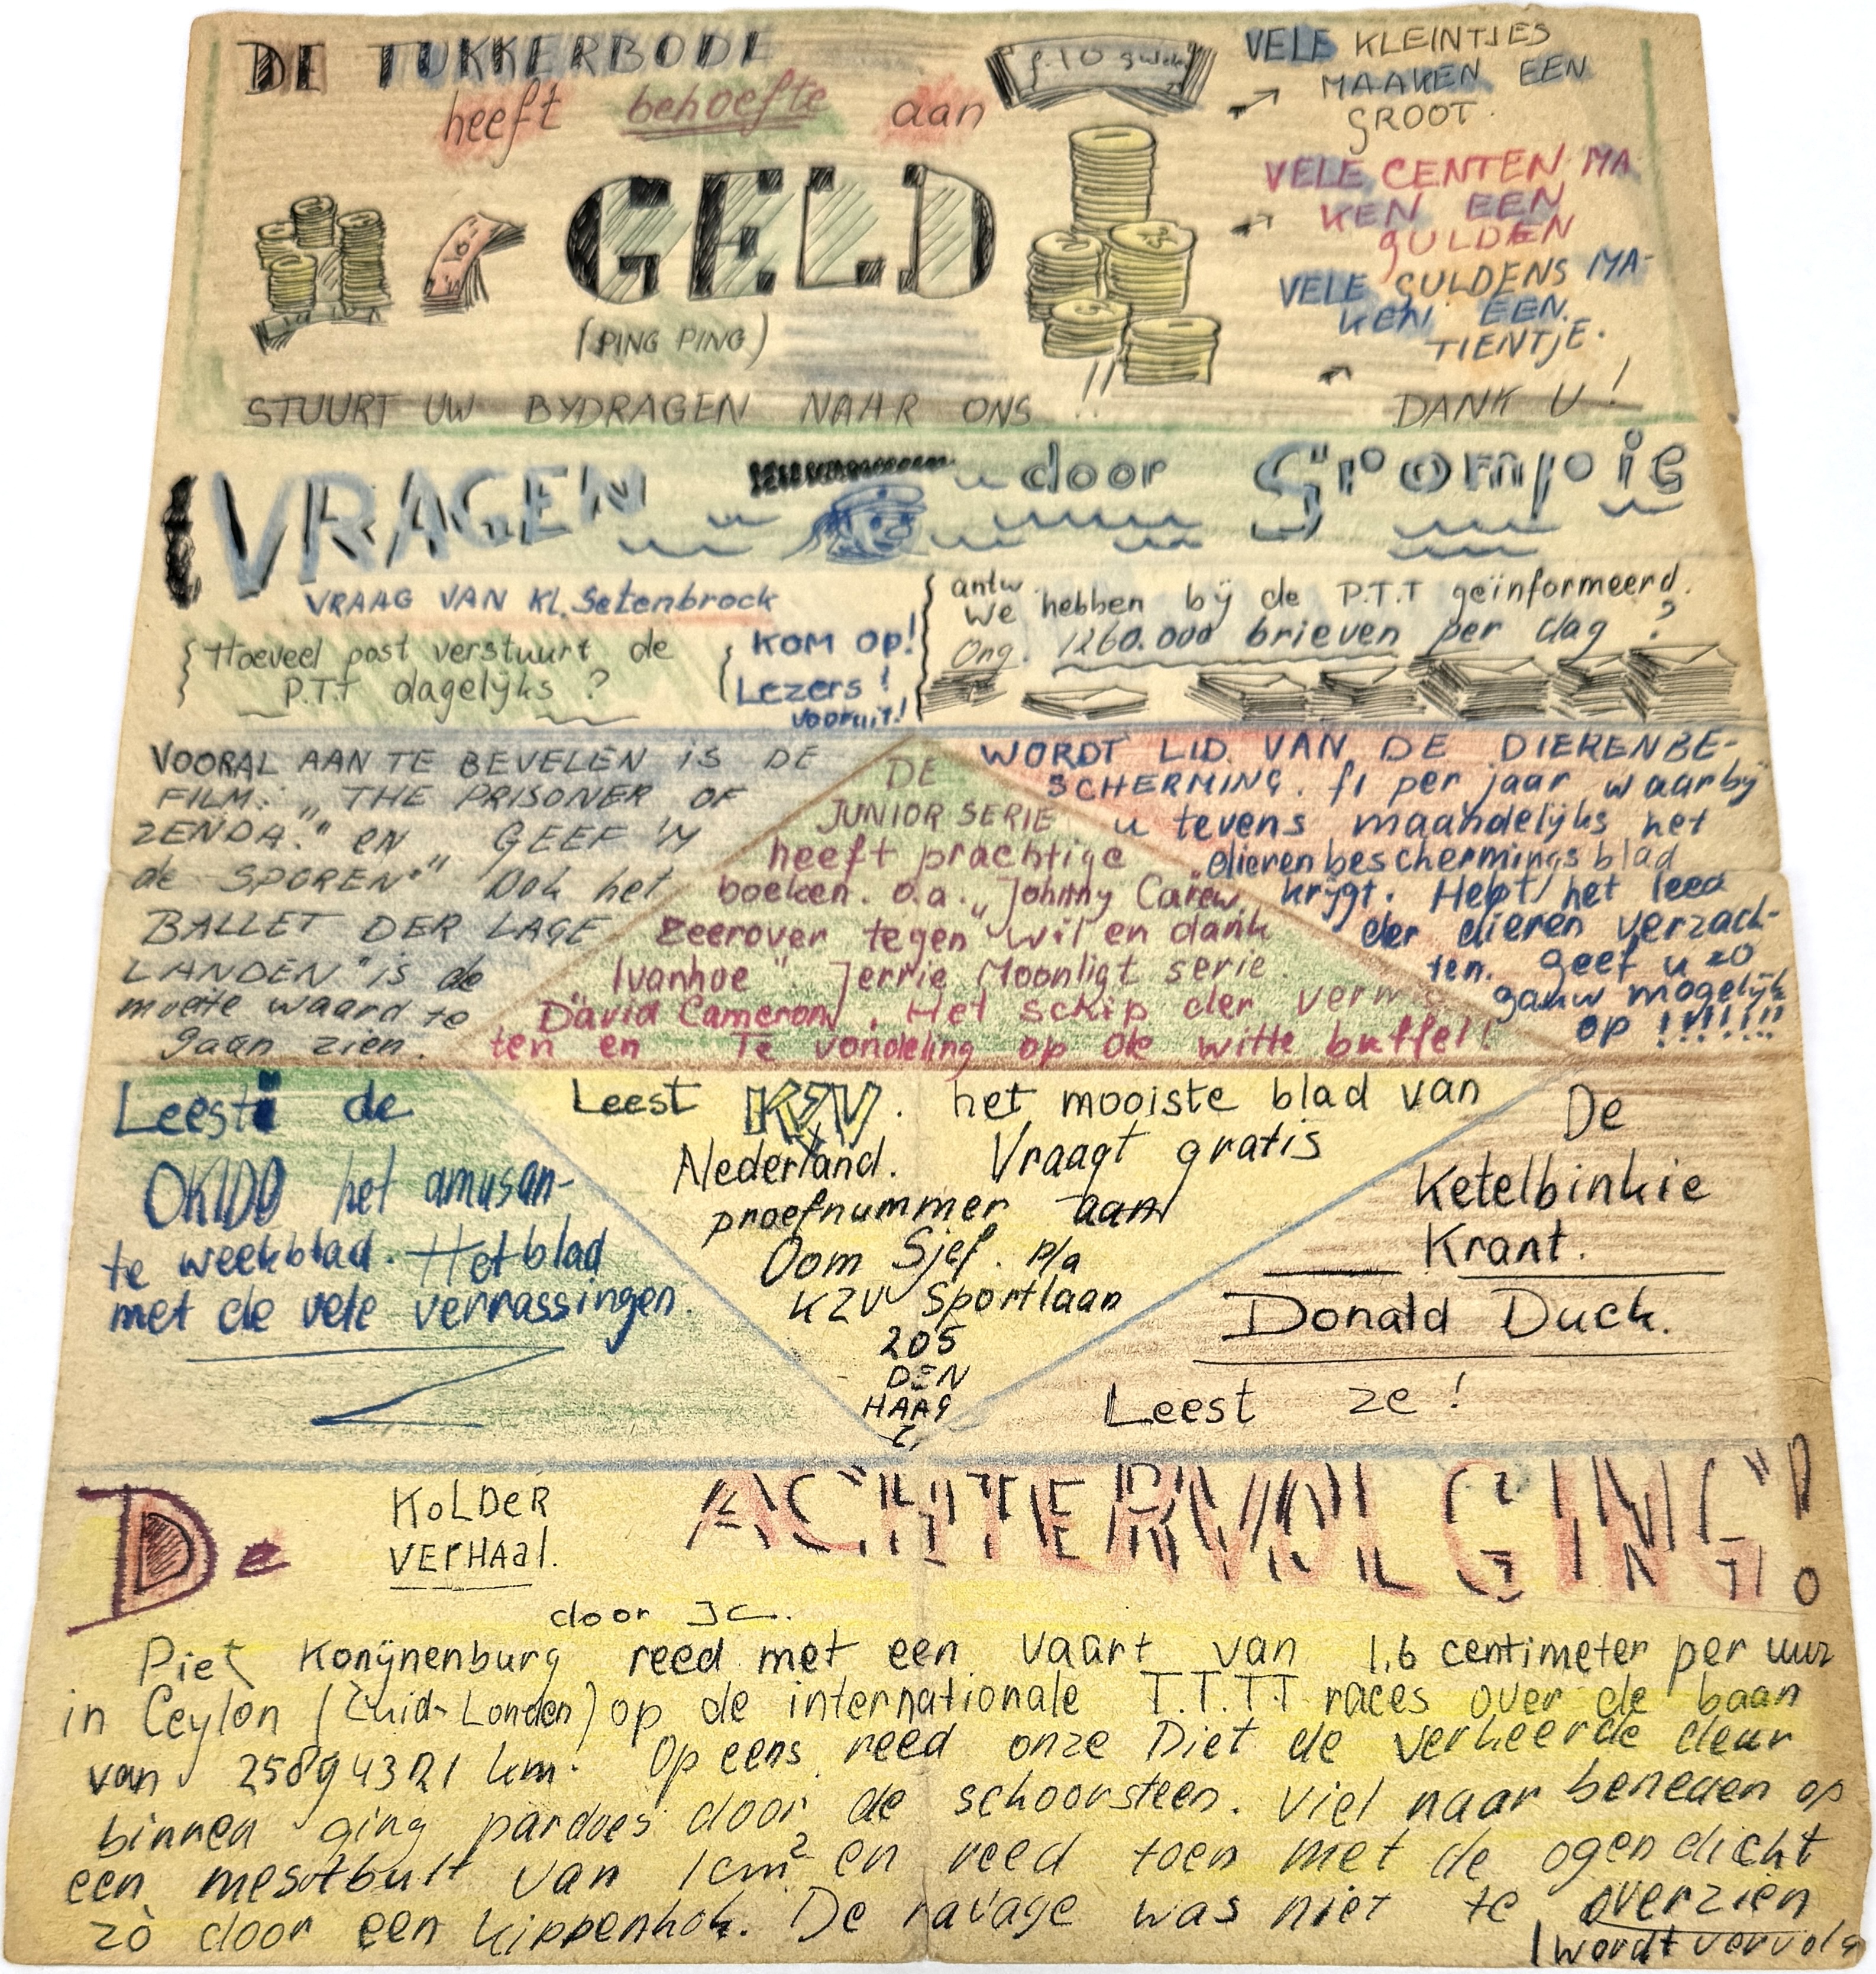 DE TUKKERBODE
heeft behoefte aan
f.10 gulden
GELD
(PING PING)
VELE KLEINTJES
MAAKEN EEN
GROOT.
VELE CENTEN MA
KEN EEN
GULDEN
VELE GULDENS MA-
KEN EEN
TIENTJE.
STUURT UW BYDRAGEN NAAR ONS !!
DANK U!
VRAGEN door Grompie
VRAAG VAN Kl. Setenbrock
Hoeveel post verstuurt de
P.T.T dagelijks ?
KOM OP!
Lezers!
vooruit!
antw.
We hebben bij de P.T.T geïnformeerd.
Ong. 1260.000 brieven per dag ?
VOORAL AAN TE BEVELEN IS DE
FILM: "THE PRISONER OF
ZENDA." en "GEEF 'M
de SPOREN." Ook het
BALLET DER LAGE
LANDEN" is de
moeite waard te
gaan zien.
DE
JUNIOR SERIE
heeft prachtige
boeken. o.a. "Johnny Carew
zeerover tegen wil en dank"
"Ivanhoe". Jerrie Moonligt serie.
David Cameron, Het schip der verm
ten en Te vondeling op de witte buffel!
WORDT LID VAN DE DIERENBE-
SCHERMING. f1 per jaar waarby
u tevens maandelijks het
dierenbeschermingsblad
krijgt. Helpt het leed
der dieren verzach-
ten. Geef u zo
gauw mogelijk
op !!!!!!!
Leest de
OKIDO het amusan-
te weekblad. Het blad
met de vele verrassingen.
Leest KZV. het mooiste blad van
Nederland. Vraagt gratis
proefnummer aan
Oom Sjef. p/a
KZV Sportlaan
205
DEN
HAAG
De
Ketelbinkie
Krant.
Donald Duck.
Leest ze!
De KOLDER
VERHAAL.
ACHTERVOLGING!
door JC.
Piet Konijnenburg reed met een vaart van 1,6 centimeter per uur
in Ceylon (Zuid-Londen) op de internationale T.T.T.T races over de baan
van 25894321 km. Op eens reed onze Piet de verkeerde deur
binnen ging pardoes door de schoorsteen. Viel naar beneden op
een mestbult van 1cm² en reed toen met de ogen dicht
zò door een kippenhok. De ravage was niet te overzien
(wordt vervolg